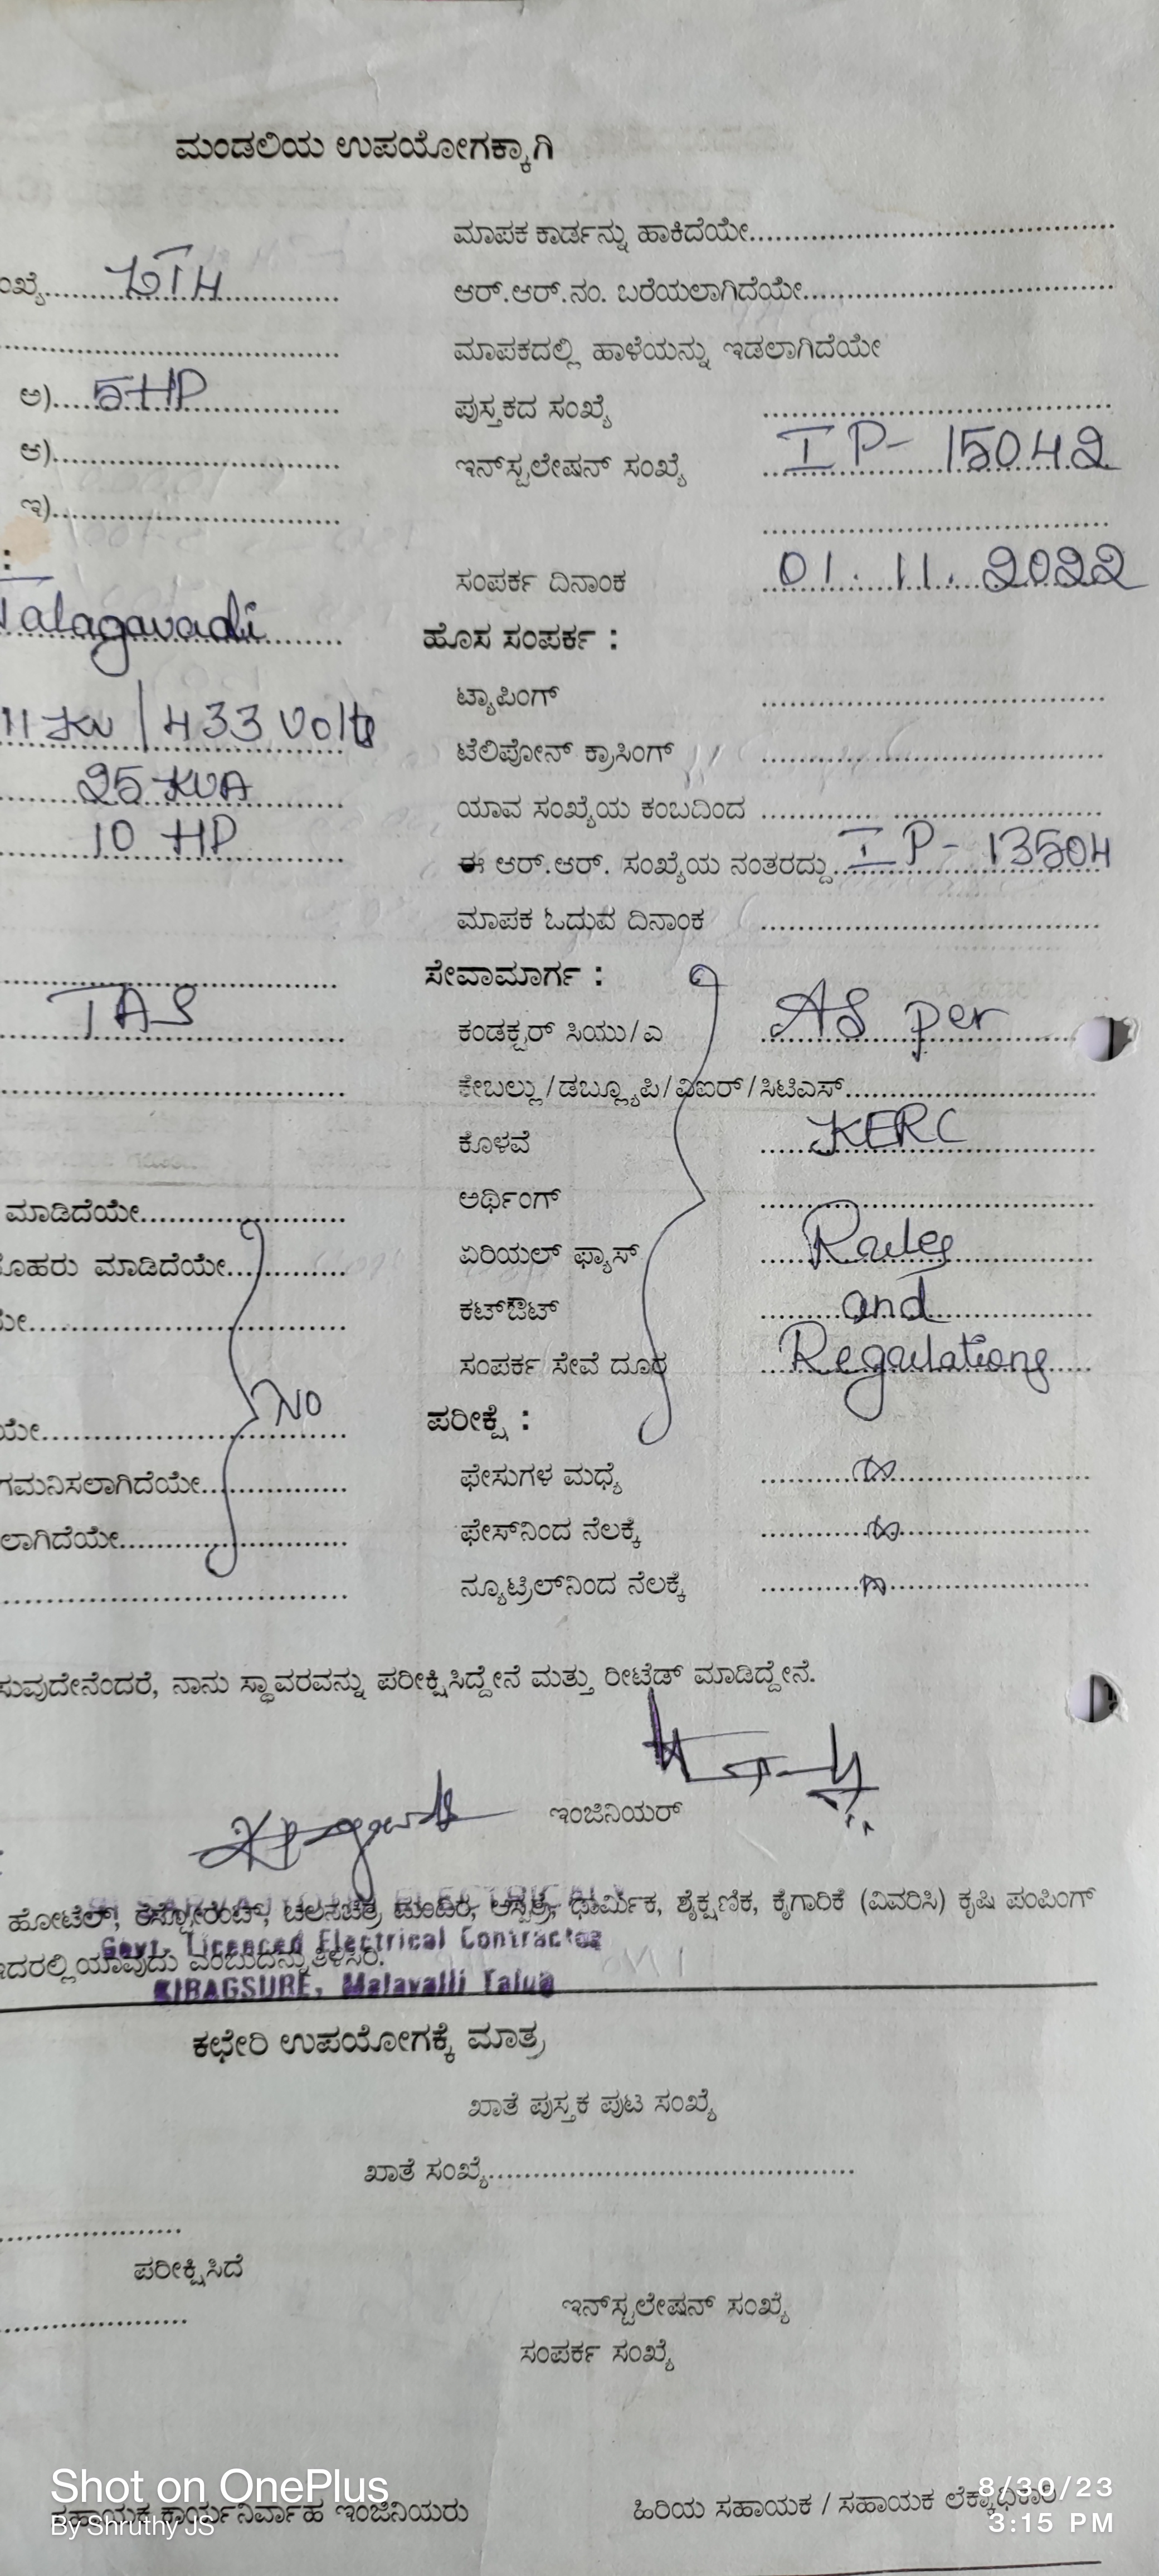 ಮಂಡಲಿಯ ಉಪಯೋಗಕ್ಕಾಗಿ
ಮಾಪಕ ಕಾರ್ಡನ್ನು ಹಾಕಿದೆಯೇ
ಆರ್.ಆರ್.ನಂ. ಬರೆಯಲಾಗಿದೆಯೇ
ಮಾಪಕದಲ್ಲಿ ಹಾಳೆಯನ್ನು ಇಡಲಾಗಿದೆಯೇ
ಅ) 5HP
ಪುಸ್ತಕದ ಸಂಖ್ಯೆ
ಆ)
ಇನ್‌ಸ್ಟಲೇಷನ್ ಸಂಖ್ಯೆ IP- 15042
ಇ)
ಸಂಪರ್ಕ ದಿನಾಂಕ 01.11.2022
Talagavadi
ಹೊಸ ಸಂಪರ್ಕ :
ಟ್ಯಾಪಿಂಗ್
11 KV / 433 Volts
ಟೆಲಿಪೋನ್ ಕ್ರಾಸಿಂಗ್
25 KVA
ಯಾವ ಸಂಖ್ಯೆಯ ಕಂಬದಿಂದ
10 HP
ಈ ಆರ್.ಆರ್. ಸಂಖ್ಯೆಯ ನಂತರದ್ದು IP- 13504
ಮಾಪಕ ಓದುವ ದಿನಾಂಕ
ಸೇವಾಮಾರ್ಗ :
TAS
ಕಂಡಕ್ಟರ್ ಸಿಯು/ಎ As per
ಕೇಬಲ್ಲು/ಡಬ್ಲ್ಯೂಪಿ/ವಿಐರ್/ಸಿಟಿಎಸ್
ಕೊಳವೆ KERC
ಮಾಡಿದೆಯೇ
ಅರ್ಥಿಂಗ್
ಮಾಡಿದೆಯೇ
ಏರಿಯಲ್ ಫ್ಯಾಸ್ Rules
ಕಟ್‌ಔಟ್ and
ಸಂಪರ್ಕ ಸೇವೆ ದೂರ Regulations
No
ಪರೀಕ್ಷೆ :
ಗಮನಿಸಲಾಗಿದೆಯೇ
ಫೇಸುಗಳ ಮಧ್ಯೆ
ಫೇಸ್‌ನಿಂದ ನೆಲಕ್ಕೆ
ನ್ಯೂಟ್ರಿಲ್‌ನಿಂದ ನೆಲಕ್ಕೆ
ನಾನು ಸ್ಥಾವರವನ್ನು ಪರೀಕ್ಷಿಸಿದ್ದೇನೆ ಮತ್ತು ರೀಟೆಡ್ ಮಾಡಿದ್ದೇನೆ.
ಇಂಜಿನಿಯರ್
ಹೋಟೆಲ್, ರೆಸ್ಟೋರೆಂಟ್, ಚಲನಚಿತ್ರ ಮಂದಿರ, ಆಸ್ಪತ್ರೆ, ಧಾರ್ಮಿಕ, ಶೈಕ್ಷಣಿಕ, ಕೈಗಾರಿಕೆ (ವಿವರಿಸಿ) ಕೃಷಿ ಪಂಪಿಂಗ್
ಇದರಲ್ಲಿ ಯಾವುದು ಎಂಬುದನ್ನು ತಿಳಿಸಿರಿ.
Govt. Licenced Electrical Contractor
KIRAGSURE, Malavalli Taluq
ಕಛೇರಿ ಉಪಯೋಗಕ್ಕೆ ಮಾತ್ರ
ಖಾತೆ ಪುಸ್ತಕ ಪುಟ ಸಂಖ್ಯೆ
ಖಾತೆ ಸಂಖ್ಯೆ
ಪರೀಕ್ಷಿಸಿದೆ
ಇನ್‌ಸ್ಟಲೇಷನ್ ಸಂಖ್ಯೆ
ಸಂಪರ್ಕ ಸಂಖ್ಯೆ
ಸಹಾಯಕ ಕಾರ್ಯನಿರ್ವಾಹ ಇಂಜಿನಿಯರು
ಹಿರಿಯ ಸಹಾಯಕ / ಸಹಾಯಕ ಲೆಕ್ಕಾಧಿಕಾರಿ
Shot on OnePlus
By Shruthy JS
8/30/23
3:15 PM